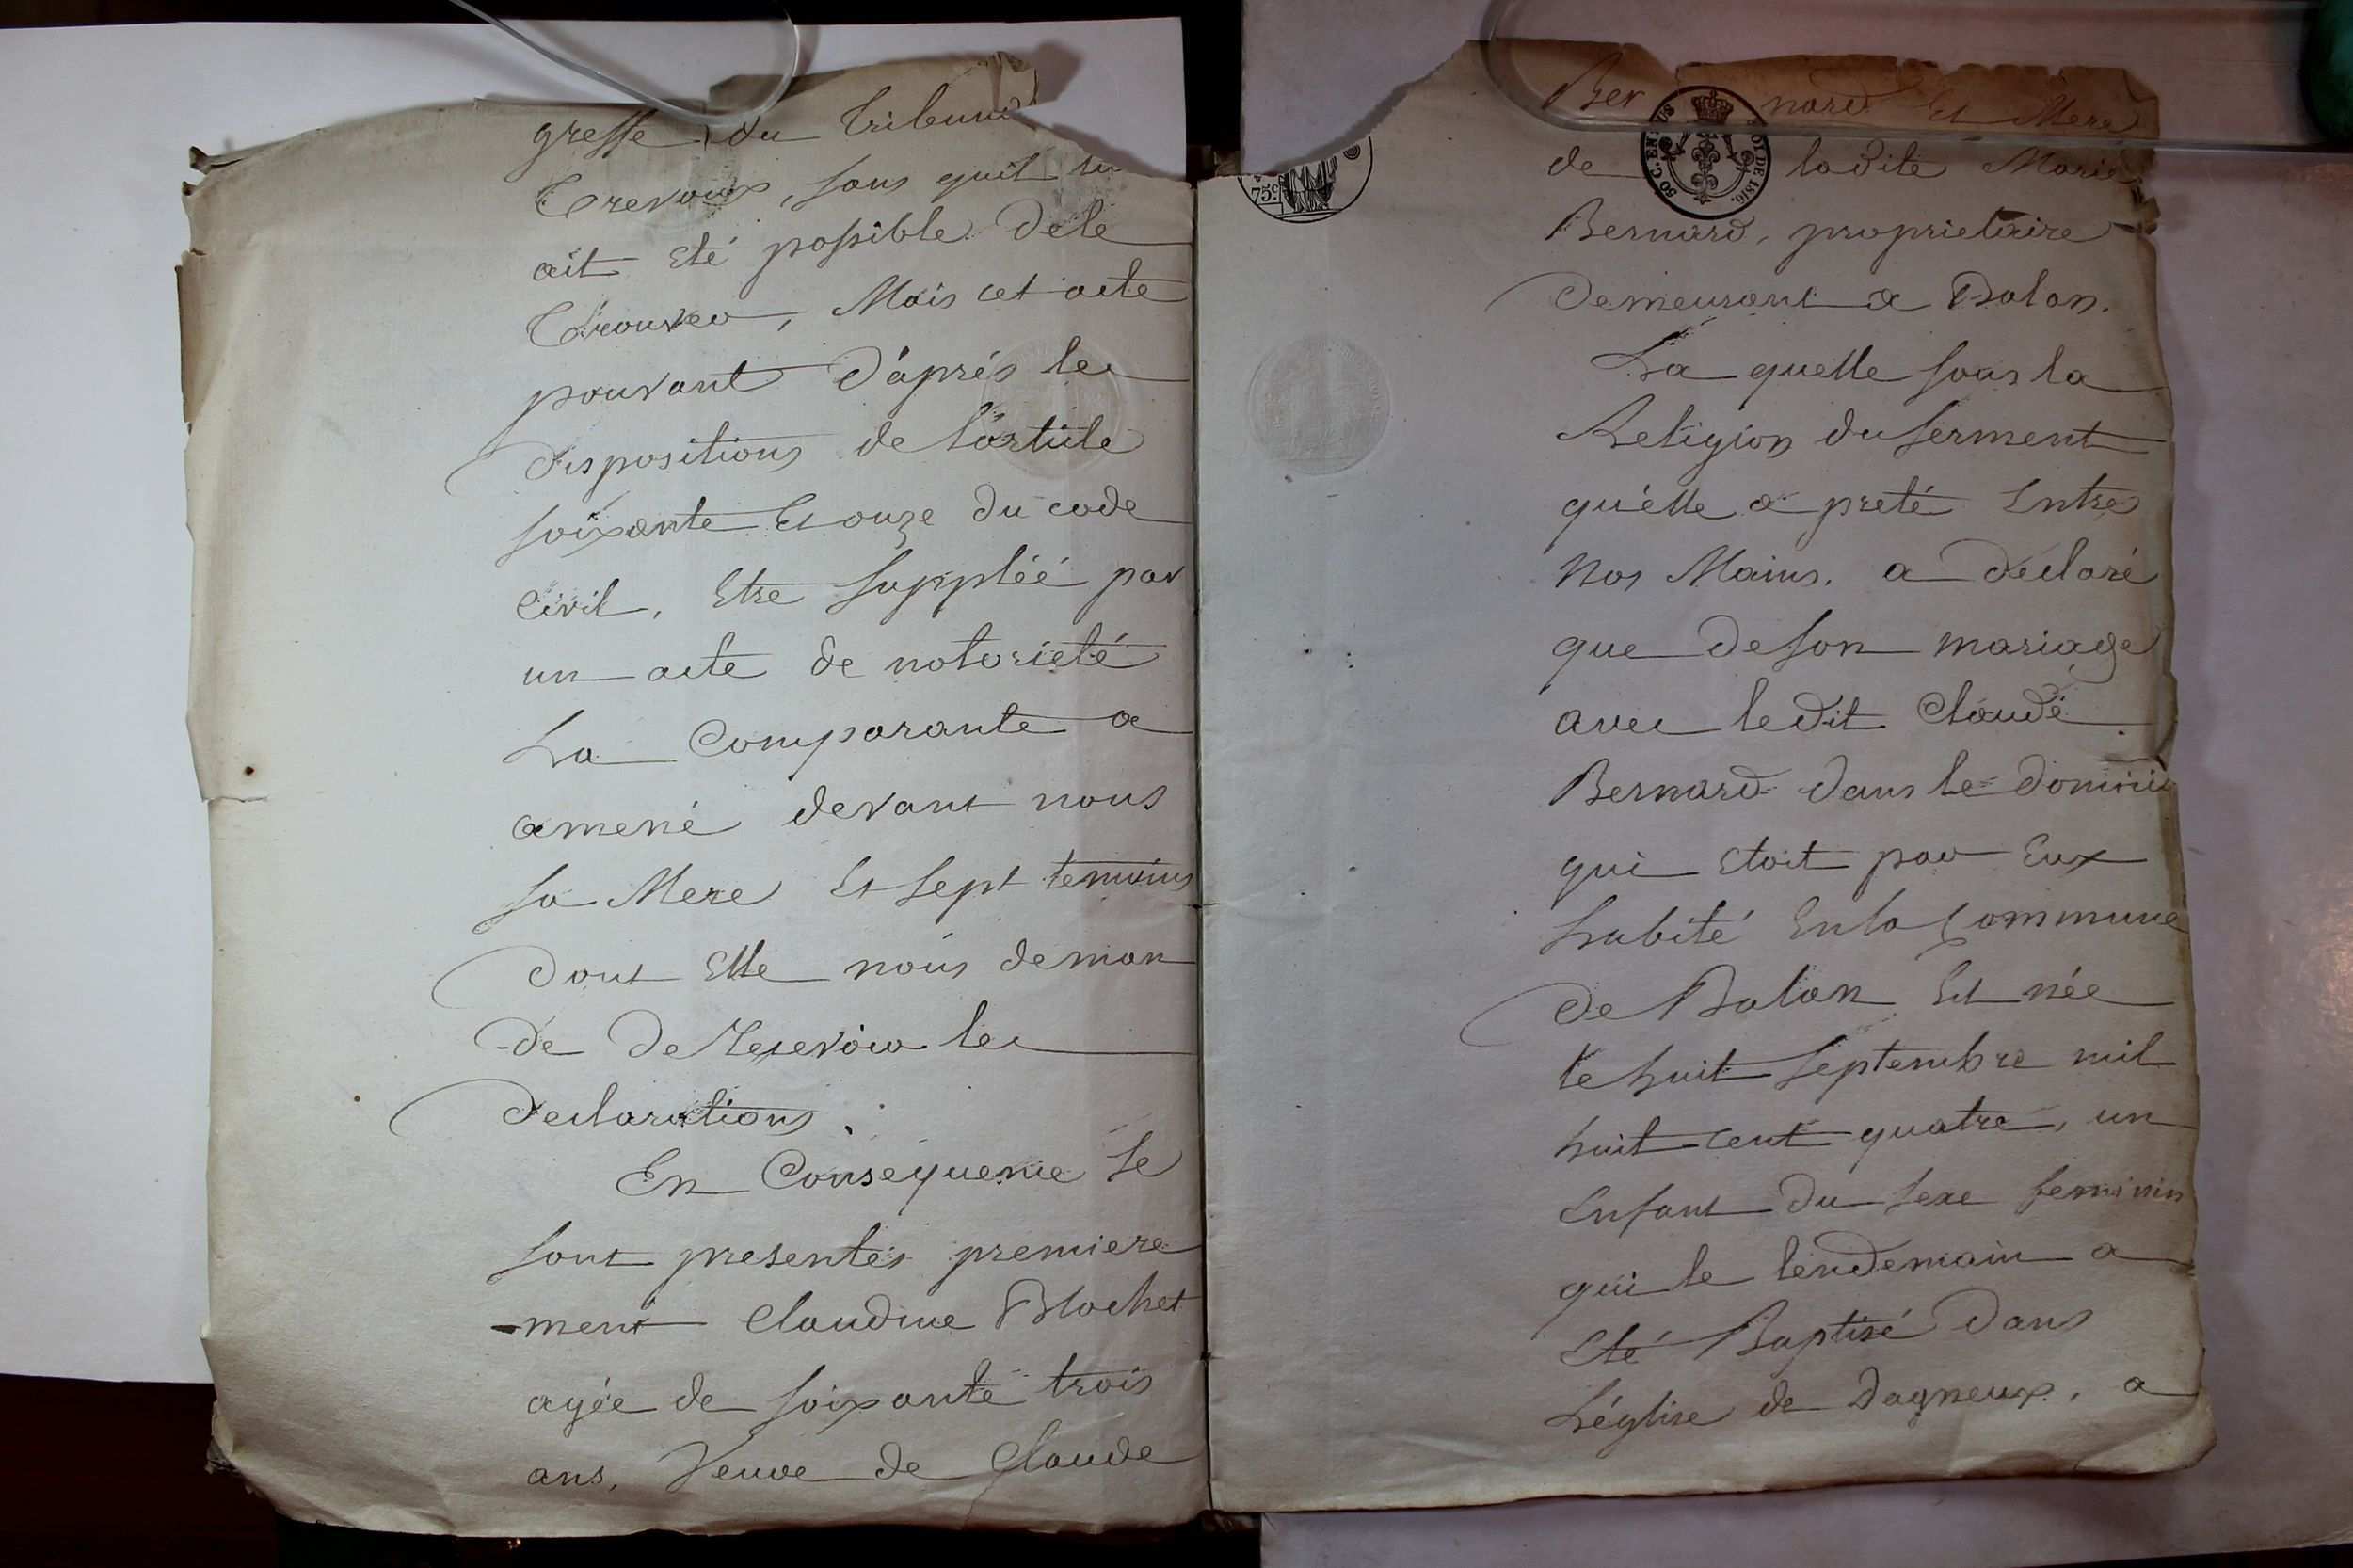 greffe du Tribuna
Trevoux, sans quil lui
ait eté possible dele
Trouver, Mais cet acte
pouvant d'aprés les
dispositions de l'article
soixante Et onze du code
civil, Etre suppléé par
un acte de notorieté
La Comparante a
amené devant nous
sa Mere Et sept temoins
dont Elle nous deman
-de De Recevoir les
declarations.
En Consequence se
sont presentés premiere
-ment Claudine Blochet
agée de soixante trois
ans, Veuve de Claude
75c.
50 C. EN SUS
LOI DE 1816.
Bernard Et Mere
de ladite Marie
Bernard, proprietaire
demeurant a Balan.
La quelle sous la
Religion du serment
qu'elle a preté Entre
Nos Mains. a declaré
que de son mariage
avec ledit Claude
Bernard dans le domici
qui Etoit par Eux
habité En la Commune
de Balan Est née
le huit Septembre mil
huit cent quatre, un
Enfant du sexe feminin
qui le lendemain a
Eté Baptisé dans
L'église de Dagneux, a